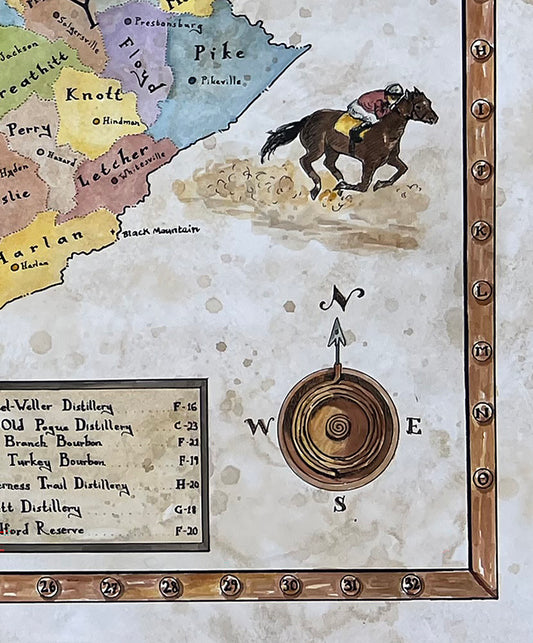 Prestonsburg
Salyersville
Floyd
Pike
Pikeville
Jackson
reathitt
Knott
Hindman
Perry
Hazard
Hyden
slie
Letcher
Whitesville
Harlan
Harlan
Black Mountain
H
I
J
K
L
M
N
O
N
W
E
S
el-Weller Distillery F-16
Old Pogue Distillery C-23
Branch Bourbon F-21
Turkey Bourbon F-19
erness Trail Distillery H-20
tt Distillery G-18
dford Reserve F-20
26 27 28 29 30 31 32